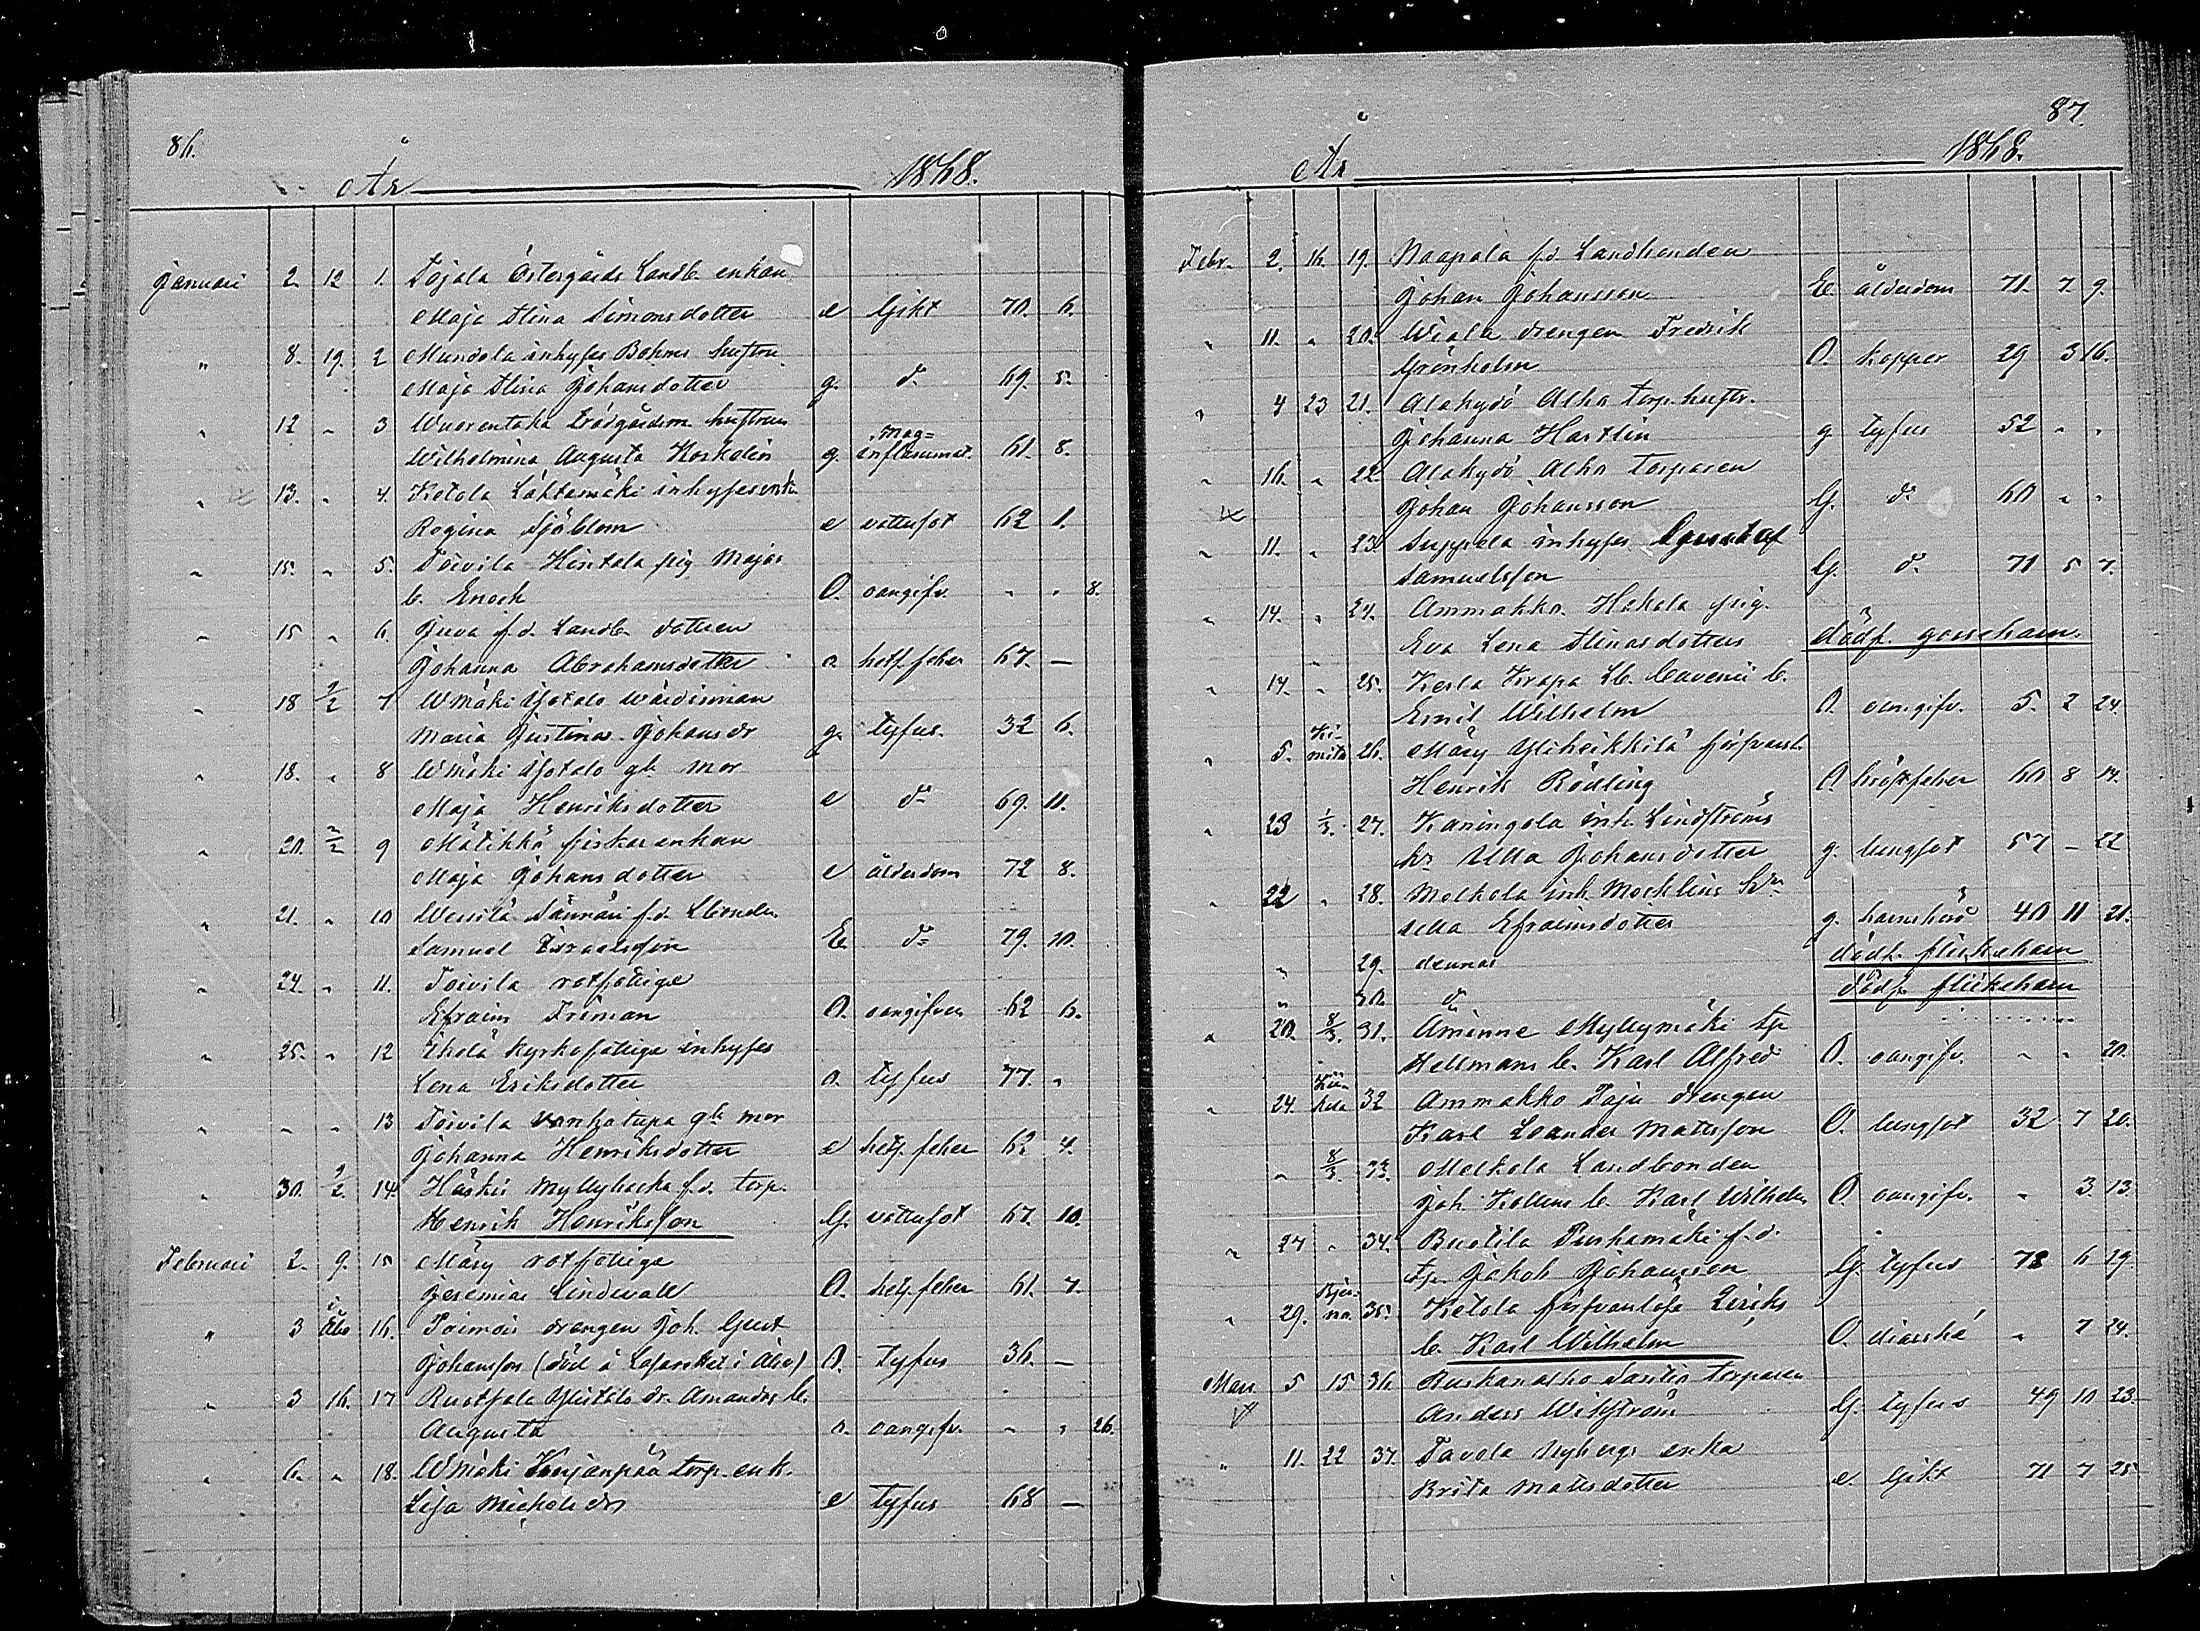 86.
År 1868.
Januari 2. 12 1. Tojala Östergårds Landb. enkan
Maja Stina Simonsdotter e Gikt 70. 6.
" 8. 19. 2 Mundola inhyses Bohms hustru
Maja Stina Johansdotter g. d:o 69. 5.
" 12 " 3 Wuorentaka trädgårdsm. hustrun
Wilhelmina Augusta Koskelin g. mag=inflammat. 61. 8.
" 13. " 4. Ketola Lähtemäki inhyses enka
Regina Sjöblom e vattusot 62 1.
" 15. " 5. Toivila Hintala pig. Majas
b. Enoch O. oangifv. " " 8.
" 15 " 6. Juva f.d. Landb. dottren
Johanna Abrahamsdotter o. hetz. feber 67. —
" 18 9/2 7 Wmäki Isotalo värdinnan
Maria Justina Johansdr g. tyfus. 32 6.
" 18. " 8 Wmäki Isotalo gb. mor
Maja Henriksdotter e d:o 69. 11.
" 20. 2/2 9 Mätikkö fiskar enkan
Maja Johansdotter e ålderdom 72 8.
" 21. " 10 Wessilä f.d. Lbonden
Samuel Israelsson E d:o 79. 10.
" 24. " 11. Toivila rotfattige
Efraim Friman O. oangifven 62 6.
" 25. " 12 kyrkofattige inhyses
Lena Eriksdotter o. tyfus 77. "
" " " 13 Toivila Vanhatupa gb. mor
Johanna Henriksdotter e hetz. feber 62 4.
" 30. 9/2. 14. Häskis Myllybacka f.d. torp.
Henrik Henriksson G. vattusot 67. 10.
Februari 2. 9. 15 Märy rotfattige
Jeremias Lindwall O. hetz. feber 61. 7.
" 3 i Åbo 16. Toimois drengen Joh. Gust
Johansson (död å Lasarettet i Åbo) O. Tyfus 36. —
" 3 16. 17 Ruotsala Ylistalo dr. Amandas b.
Augusta o. oangifv. " " 26.
" 6. " 18. Wmäki Kujanpää torp. enk.
Lisa Michelsdr e tyfus 68 —
87.
År 1868.
Febr. 2. 16. 19. Naapala f.d. Landbonden
Johan Johansson E. ålderdom 71. 7 9.
" 11. " 20. Wiala drengen Fredrik
Grönholm O. koppor 29 3 16.
" 4 23 21. Alakydö Alho torp. hustr.
Johanna Hartlin g tyfus 52 " "
" 16. " 22. Alakydö Alho torparen
Johan Johansson G. d:o 60 " "
" 11. " 23. Suppela inhyses Gustaf
Samuelsson G. d:o 71 5 7.
" 14. " 24. Ammakko Hakala pig.
Eva Lena Stinasdotters dödf. gossebarn.
" 14. " 25. Kesla Krapa Lb. b.
Emil Wilhelm O. oangifv. 5. 2 24.
" 5. Kimito 26. Märy Yliheikkilä försvarsl.
Henrik Rödling O 60 8 14.
" 23 1/3. 27. Kaningola inh. Lindströms
h. Ulla Johansdotter g. lungsot 57 — 22
" 22 " 28. Melkola inh. Mecklins h:u
Ulla Efraimsdotter g. barnsbörd 40 11 21.
" 29. dennas dödf. flickebarn
" 30. d:o dödf. flickebarn
" 20. 8/3. 31. Åminne Myllymäki tp
Hellmans b. Karl Alfred O. oangifv. " " 20.
" 24. Kiikala 32 Ammakko Taju drengen
Karl Leander Matsson O. lungsot 32 7 20.
" 8/3. 33. Melkola Landbonden
Joh. b. Karl Wilhelm O. oangifv. " 3. 13.
" 27 " 34. Buotila Purhamäki f.d.
tp. Jakob Johansson G. tyfus 78 6 29.
" 29. Bjerno. 35. Ketola försvarslöse Leriks
b. Karl Wilhelm O. diarrhé " 7 24.
Mars 5 15 36. Ruskanalho Santio torparen
Anders Wikström G. tyfus 49 10 23.
" 11. 22 37. Tavola Nybergs enka
Brita Matsdotter e. Gikt 71 7 25